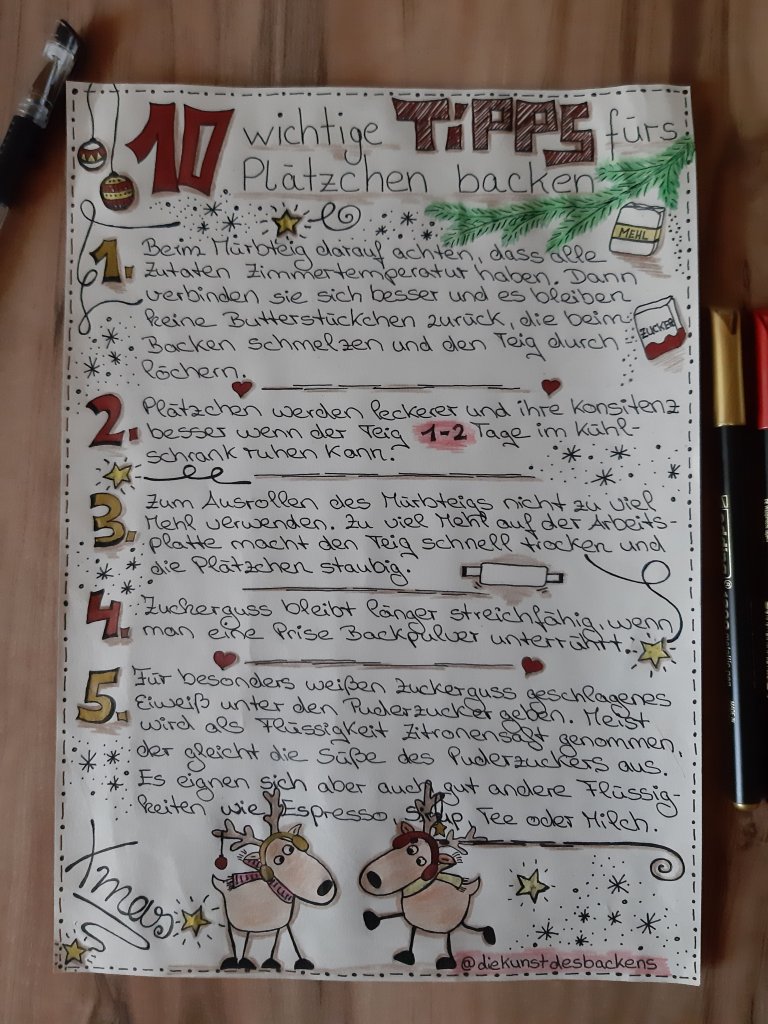 10 wichtige TIPPS fürs
Plätzchen backen
MEHL
1. Beim Mürbteig darauf achten, dass alle
Zutaten Zimmertemperatur haben. Dann
verbinden sie sich besser und es bleiben
keine Butterstückchen zurück, die beim
Backen schmelzen und den Teig durch
löchern.
ZUCKER
2. Plätzchen werden leckerer und ihre Konsitenz
besser wenn der Teig 1-2 Tage im Kühl-
schrank ruhen kann.
3. Zum Ausrollen des Mürbteigs nicht zu viel
Mehl verwenden. Zu viel Mehl auf der Arbeits-
platte macht den Teig schnell trocken und
die Plätzchen staubig.
4. Zuckerguss bleibt länger streichfähig, wenn
man eine Prise Backpulver unterrührt.
5. Für besonders weißen Zuckerguss geschlagenes
Eiweiß unter den Puderzucker geben. Meist
wird als Flüssigkeit Zitronensaft genommen,
der gleicht die Süße des Puderzuckers aus.
Es eignen sich aber auch gut andere Flüssig-
keiten wie Espresso, Sirup, Tee oder Milch.
Xmas
@diekunstdesbackens